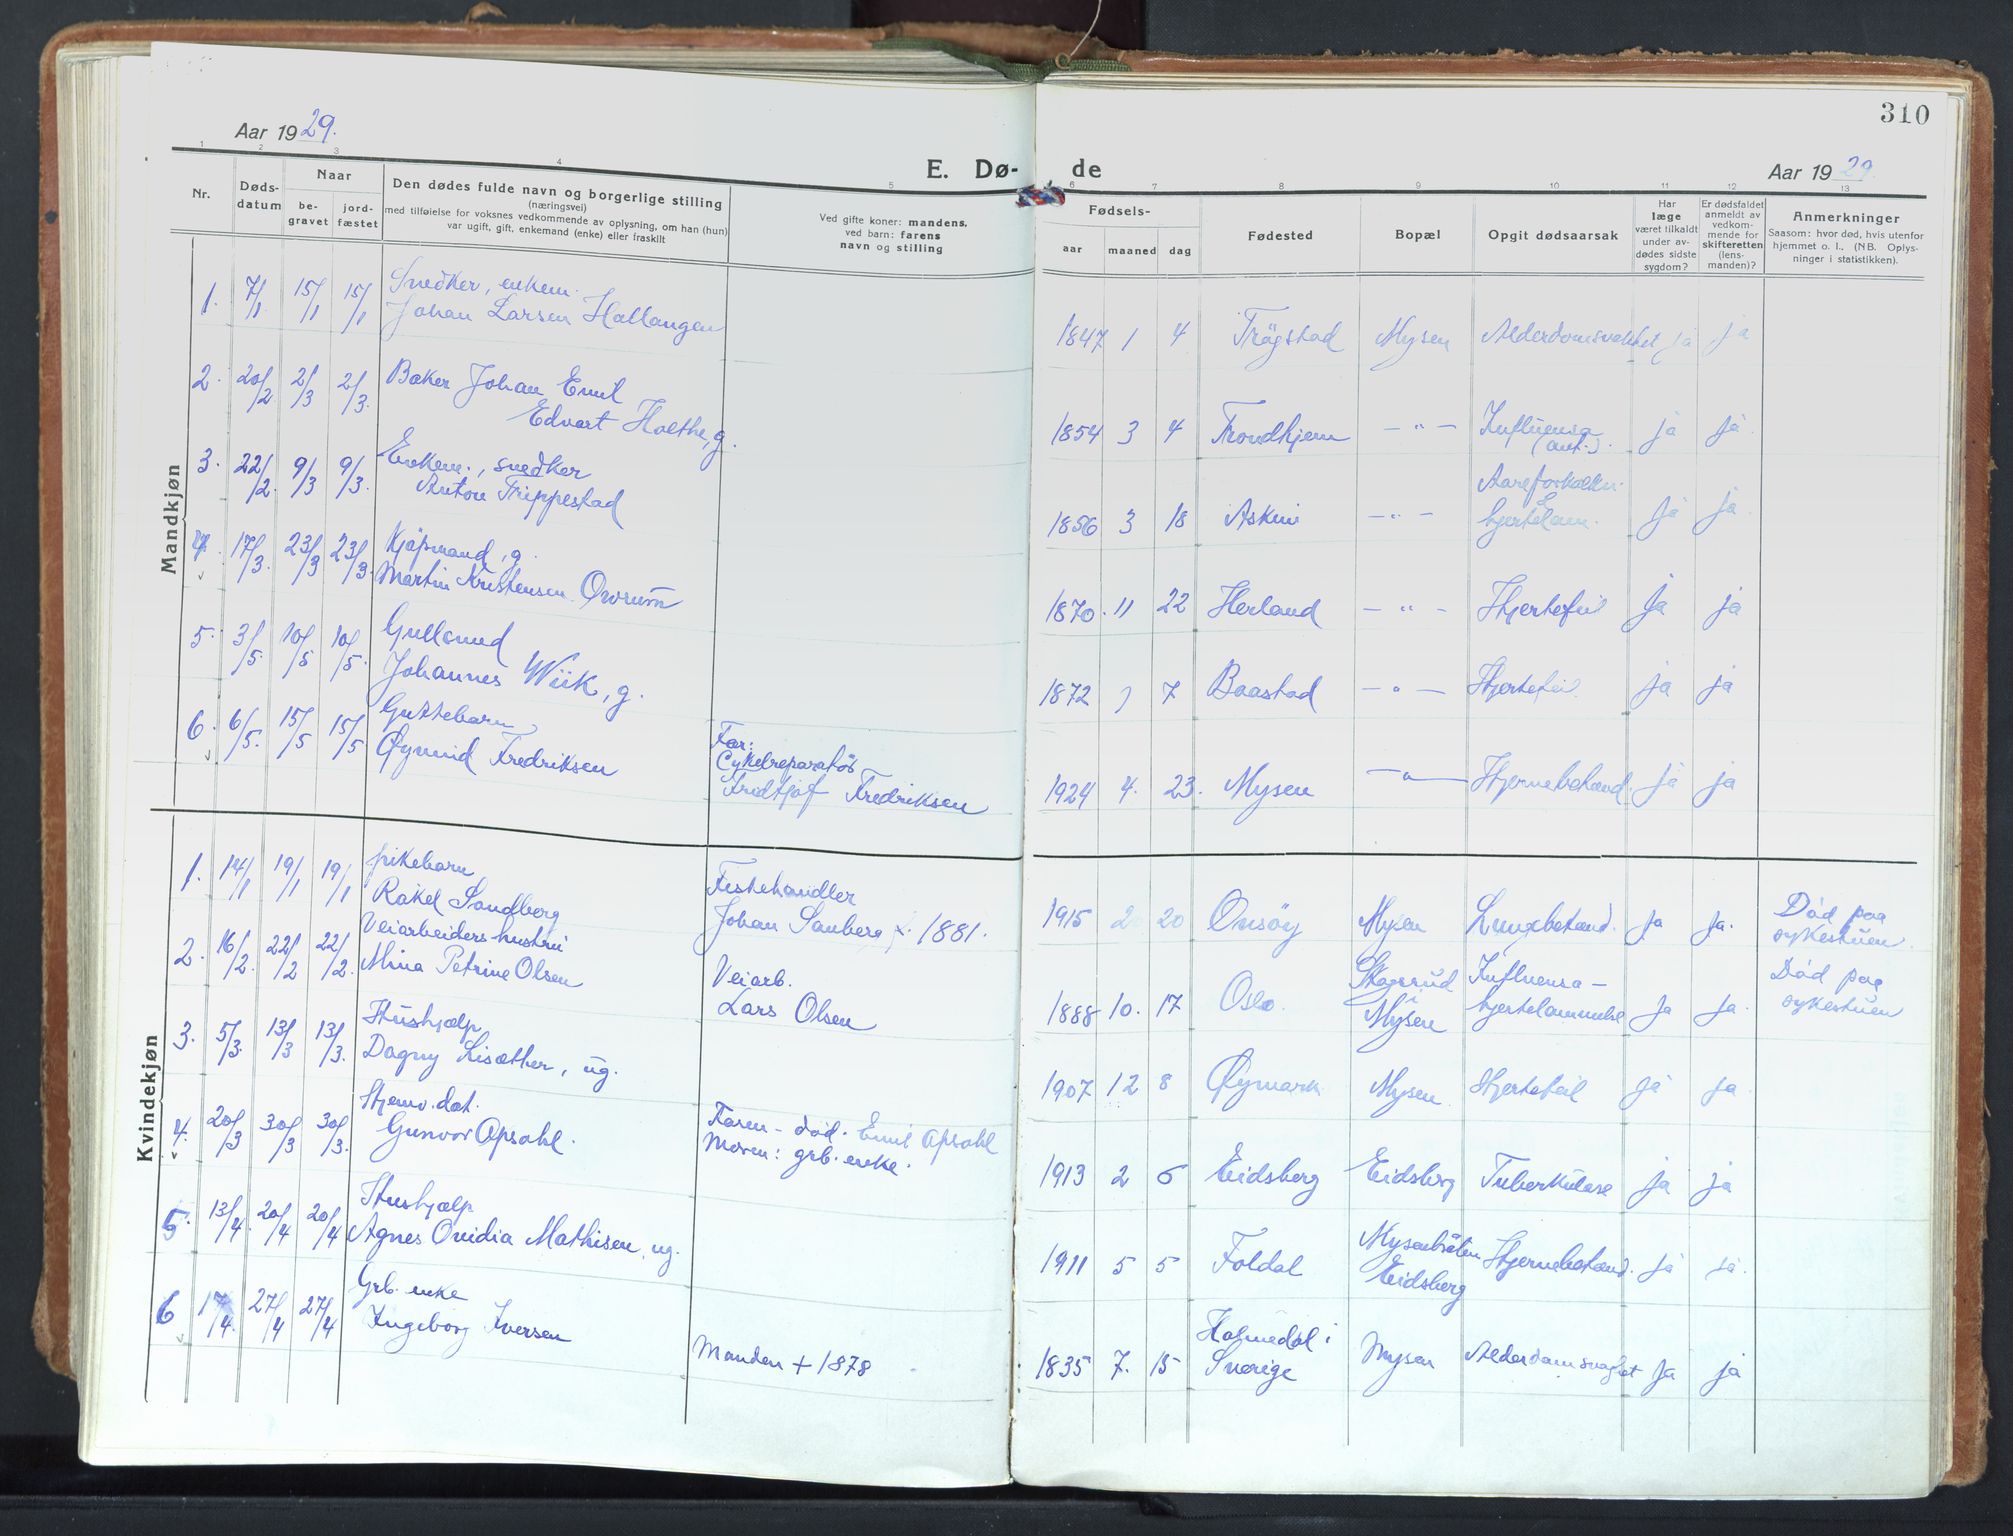 310
Aar 1929.
E. Dø-
de
Aar 1929.
1 2 3 4 5 6 7 8 9 10 11 12 13
Nr.
Døds-
datum
Naar
be-
gravet
jord-
fæstet
Den dødes fulde navn og borgerlige stilling
(næringsvei)
med tilføielse for voksnes vedkommende av oplysning, om han (hun)
var ugift, gift, enkemand (enke) eller fraskilt
Ved gifte koner: mandens,
ved barn: farens
navn og stilling
Fødsels-
aar maaned dag
Fødested
Bopæl
Opgit dødsaarsak
Har
læge
været tilkaldt
under av-
dødes sidste
sygdom?
Er dødsfaldet
anmeldt av
vedkom-
mende for
skifteretten
(lens-
manden)?
Anmerkninger
Saasom: hvor død, hvis utenfor
hjemmet o. l., (NB. Oplys-
ninger i statistikken).
Mandkjøn
Snedker, enkem.
1. 7/1 15/1 15/1 Johan Larsen Hallangen 1847 1 4 Trøgstad Mysen Alderdomsvakhet ja ja
2. 20/2 2/3 2/3. Baker Johan Emil
Edvart Holthe, g. 1854 3 4 Trondhjem — " — Influensa ja ja.
(ant.).
3. 22/2. 9/3 9/3. Enkem., snedker
Anton Trippestad 1856 3 18 Askim — " — Aareforkalkn.
& hjertelam. ja ja.
4. 17/3. 23/3 23/3. Kjøpmand, g.
Martin Kristensen Ovrum 1870. 11 22 Herland — " — Hjertefeil ja ja
5. 3/5. 10/5 10/5. Gullsmed
Johannes Wiik, g. 1872 7 Baastad — " — Hjertefeil ja ja
6. 6/5. 15/5 15/5 Guttebarn
Øyvind Fredriksen
Far:
Cykelreparatør
Fredtjof Fredriksen 1924 4. 23. Mysen — " — Hjernebetænd. ja ja
Kvindekjøn
1. 14/1 19/1 19/1 pikebarn
Rakel Sandberg
Fiskehandler
Johan Sanberg f. 1881. 1915 20 20 Onsøy Mysen Lungebetænd. ja ja. Død paa
sykestuen.
2. 16/2. 22/2 22/2. Veiarbeiders hustru
Mina Petrine Olsen
Veiarb.
Lars Olsen 1888 10. 17 Oslo. Skogsrud
i Mysen
Influensa —
hjertelammelse ja ja. Død paa
sykestuen
3. 5/3. 13/3 13/3. Hushjælp
Dagny Lisæther, ug. 1907 12 8 Øymark Mysen Hjertefeil ja ja
4. 20/3 30/3 30/3. Hjemv. dat.
Gunvor Opsahl.
Faren – død. Emil Opsahl
Moren: grb. enke. 1913 2 6 Eidsberg Eidsberg Tuberkulose ja ja
5. 13/4. 20/4 20/4 Hushjælp
Agnes Ovidia Mathisen, ug. 1911 5 5 Foldal Mysenbråten
Eidsberg Hjernebetænd. ja ja.
6 17/4. 27/4 27/4 Grb. enke
Ingeborg Iversen
Manden + 1878 1835 7. 15 Holmedal i
Sverige Mysen Alderdomsvaghet ja ja